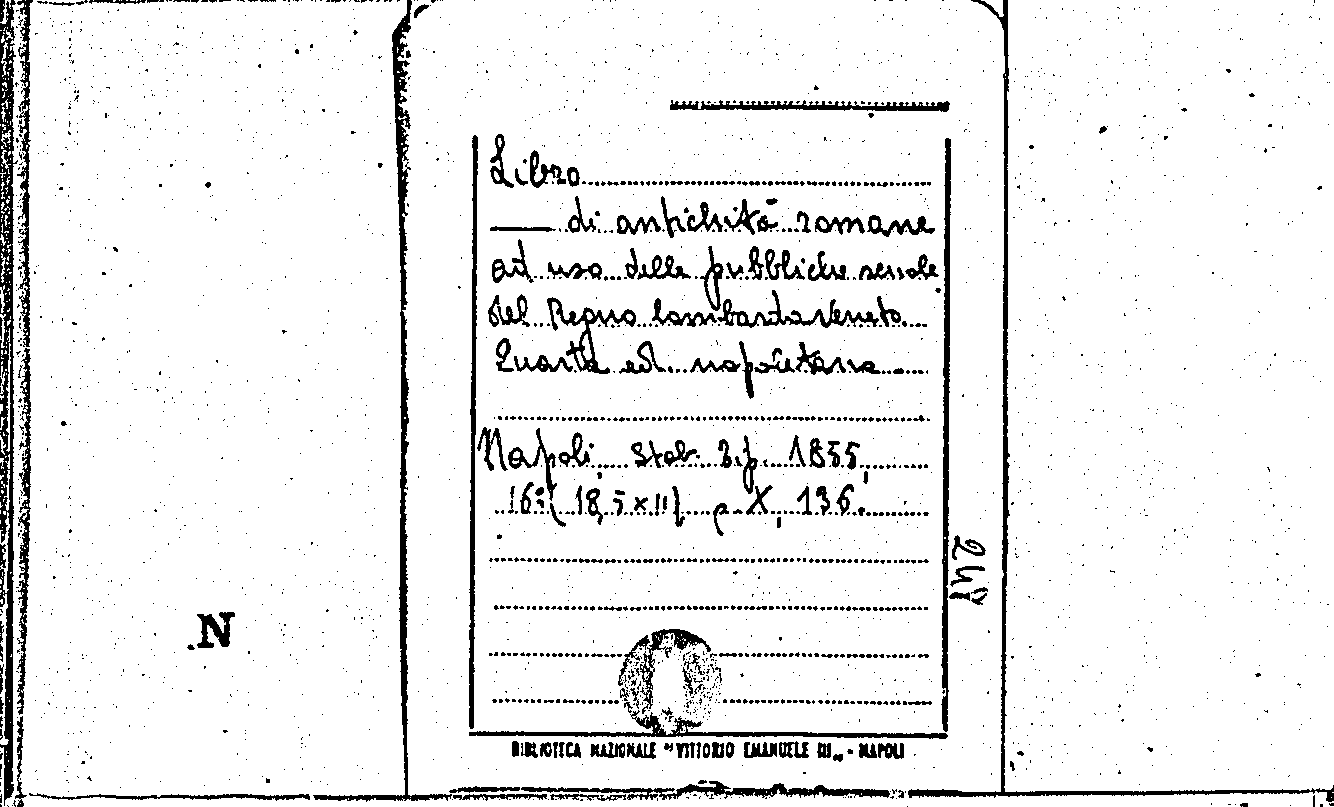 Libro
—— di antichità romane
ad uso delle pubbliche scuole
del Regno lombardo veneto.
Quarta ed. napoletana
Napoli, Stab. tip. 1855,
16º( 18,5 x 11), p. X, 136.
N
BIBLIOTECA NAZIONALE "VITTORIO EMANUELE III" - NAPOLI